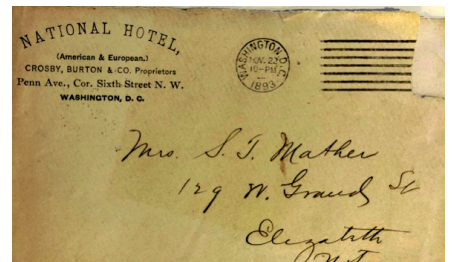 NATIONAL HOTEL,
(American & European.)
CROSBY, BURTON & CO. Proprietors
Penn Ave., Cor. Sixth Street N. W.
WASHINGTON, D. C.
WASHINGTON, D.C.
NOV. 22
10-PM
1893
Mrs. S. T. Mather
129 W. Grand St
Elizabeth
N.J.